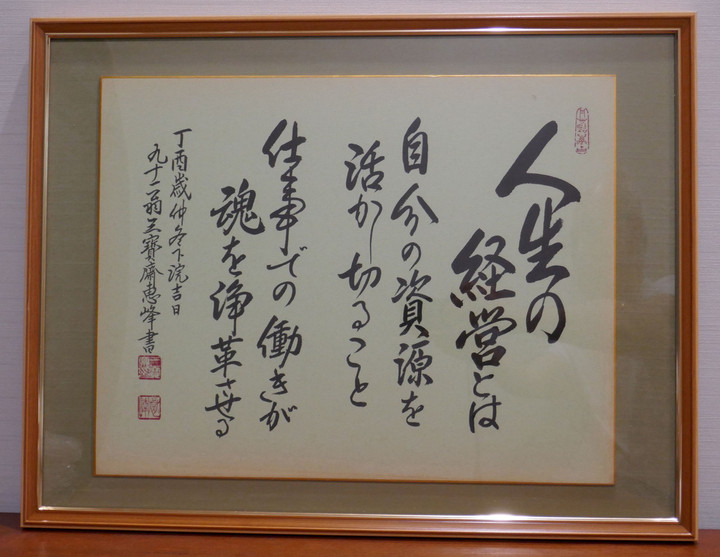 人生の
経営とは
自分の資源を
活かし切ること
仕事での働きが
魂を浄革させる
丁酉歳仲冬下浣吉日
九十二翁三寳齋惠峰書